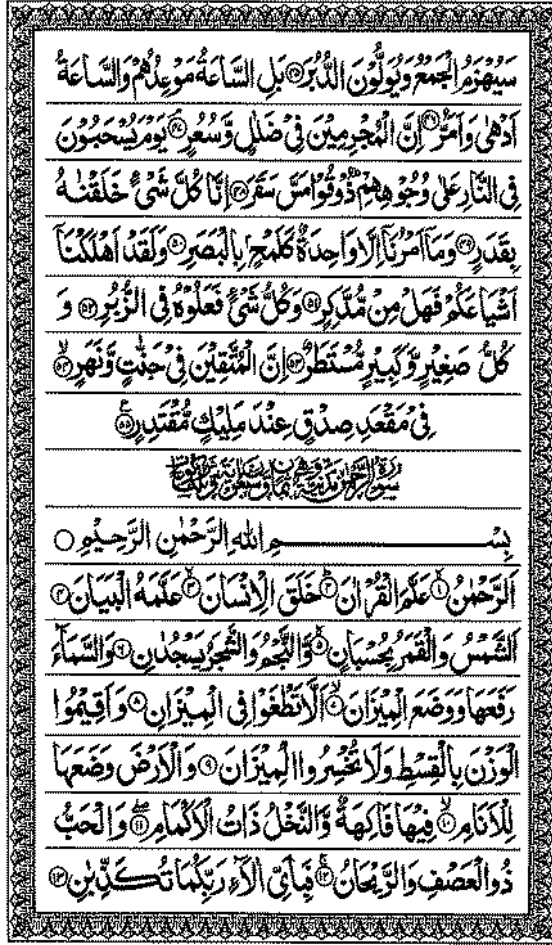 سَيُهْزَمُ الْجَمْعُ وَيُوَلُّوْنَ الدُّبُرَ ﴿۴۵﴾ بَلِ السَّاعَةُ مَوْعِدُهُمْ وَالسَّاعَةُ
اَدْهٰى وَاَمَرُّ ﴿۴۶﴾ اِنَّ الْمُجْرِمِيْنَ فِيْ ضَلٰلٍ وَّسُعُرٍ ﴿۴۷﴾ يَوْمَ يُسْحَبُوْنَ
فِي النَّارِ عَلٰى وُجُوْهِهِمْ ذُوْقُوْا مَسَّ سَقَرَ ﴿۴۸﴾ اِنَّا كُلَّ شَيْءٍ خَلَقْنٰهُ
بِقَدَرٍ ﴿۴۹﴾ وَمَاۤ اَمْرُنَاۤ اِلَّا وَاحِدَةٌ كَلَمْحٍۭ بِالْبَصَرِ ﴿۵۰﴾ وَلَقَدْ اَهْلَكْنَاۤ
اَشْيَاعَكُمْ فَهَلْ مِنْ مُّدَّكِرٍ ﴿۵۱﴾ وَكُلُّ شَيْءٍ فَعَلُوْهُ فِي الزُّبُرِ ﴿۵۲﴾ وَ
كُلُّ صَغِيْرٍ وَّكَبِيْرٍ مُّسْتَطَرٌ ﴿۵۳﴾ اِنَّ الْمُتَّقِيْنَ فِيْ جَنّٰتٍ وَّنَهَرٍ ﴿۵۴﴾
فِيْ مَقْعَدِ صِدْقٍ عِنْدَ مَلِيْكٍ مُّقْتَدِرٍ ﴿۵۵﴾
بِسْمِ اللهِ الرَّحْمٰنِ الرَّحِيْمِ ○
اَلرَّحْمٰنُ ﴿۱﴾ عَلَّمَ الْقُرْاٰنَ ﴿۲﴾ خَلَقَ الْاِنْسَانَ ﴿۳﴾ عَلَّمَهُ الْبَيَانَ ﴿۴﴾
اَلشَّمْسُ وَالْقَمَرُ بِحُسْبَانٍ ﴿۵﴾ وَّالنَّجْمُ وَالشَّجَرُ يَسْجُدٰنِ ﴿۶﴾ وَالسَّمَآءَ
رَفَعَهَا وَوَضَعَ الْمِيْزَانَ ﴿۷﴾ اَلَّا تَطْغَوْا فِي الْمِيْزَانِ ﴿۸﴾ وَاَقِيْمُوا
الْوَزْنَ بِالْقِسْطِ وَلَا تُخْسِرُوا الْمِيْزَانَ ﴿۹﴾ وَالْاَرْضَ وَضَعَهَا
لِلْاَنَامِ ﴿۱۰﴾ فِيْهَا فَاكِهَةٌ وَّالنَّخْلُ ذَاتُ الْاَكْمَامِ ﴿۱۱﴾ وَالْحَبُّ
ذُو الْعَصْفِ وَالرَّيْحَانُ ﴿۱۲﴾ فَبِاَيِّ اٰلَآءِ رَبِّكُمَا تُكَذِّبٰنِ ﴿۱۳﴾